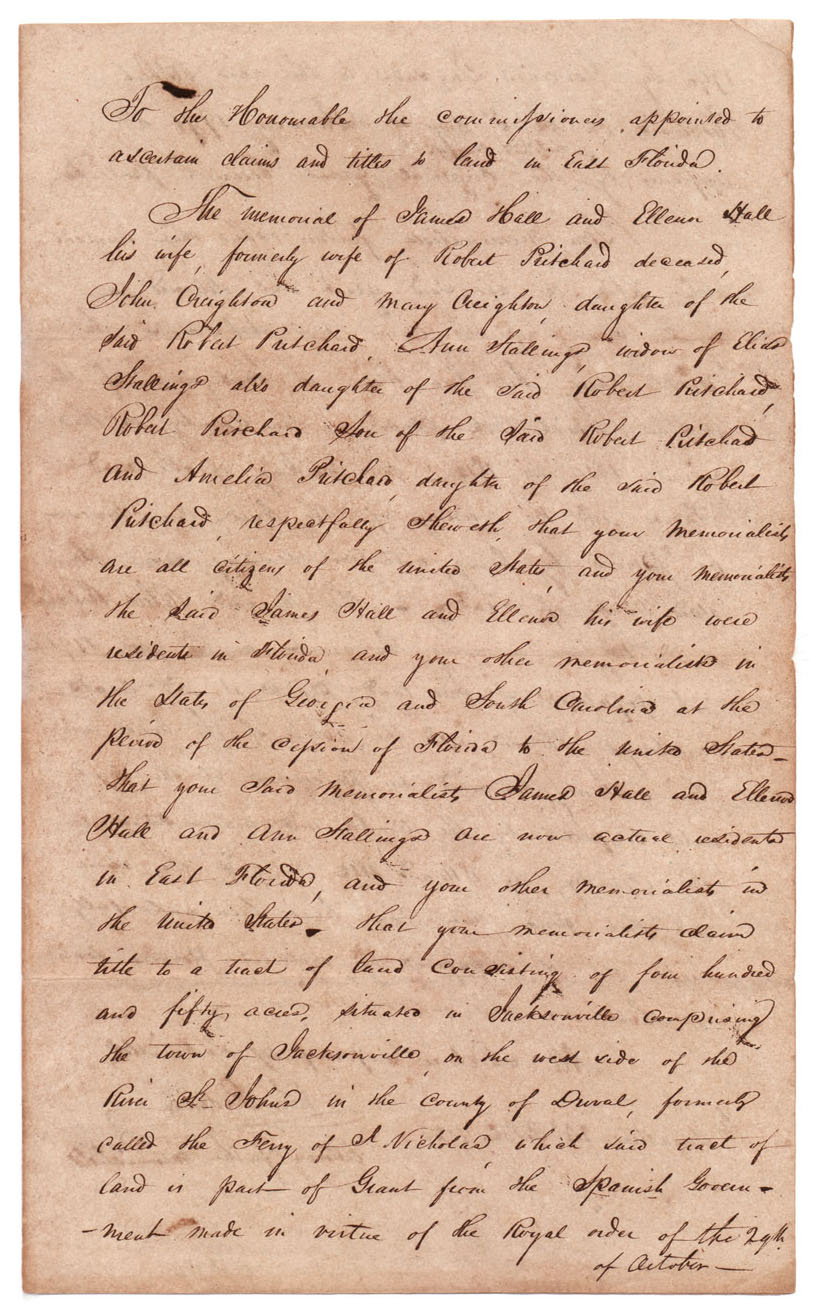 To the Honourable the commissioners, appointed to
ascertain claims and titles to land in East Florida.
The memorial of James Hall and Ellenor Hall
his wife, formerly wife of Robert Pritchard deceased,
John Creighton and Mary Creighton, daughter of the
said Robert Pritchard, Ann Stallings, widow of Elias
Stallings also daughter of the said Robert Pritchard,
Robert Pritchard Son of the said Robert Pritchard
and Amelia Pritchard, daughter of the said Robert
Pritchard, respectfully sheweth, that your Memorialists
are all citizens of the united States, and your memorialists
the said James Hall and Ellenor his wife were
residents in Florida, and your other memorialists in
the States of Georgia and South Carolina at the
period of the cession of Florida to the United States-
that your said Memorialists James Hall and Ellenor
Hall and Ann Stallings are now actual residents
in East Florida, and your other memorialists in
the United States. that your memorialists claim
title to a tract of land consisting of four hundred
and fifty, acres, situated in Jacksonville comprising
the town of Jacksonville, on the west side of the
River St Johns in the County of Duval, formerly
called the Ferry of St Nicholas, which said tract of
land is part of Grant from the Spanish Govern-
-ment made in virtue of the Royal order of the 29th
of October-